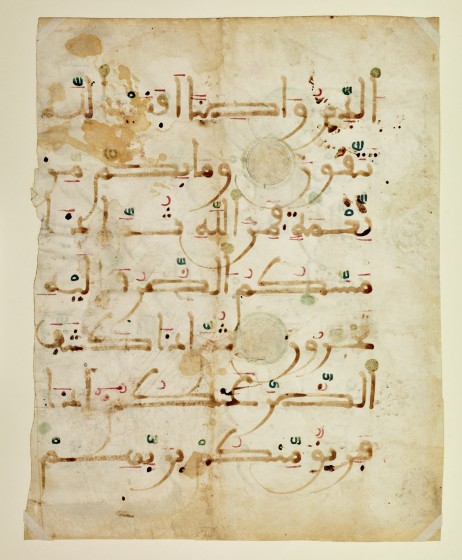 الدين واصبا افغير الله
تتقون وما بكم من
نعمة فمن الله ثم اذا
مسكم الضر فاليه
تجرون ثم اذا كشف
الضر عنكم اذا
فريق منكم بربهم